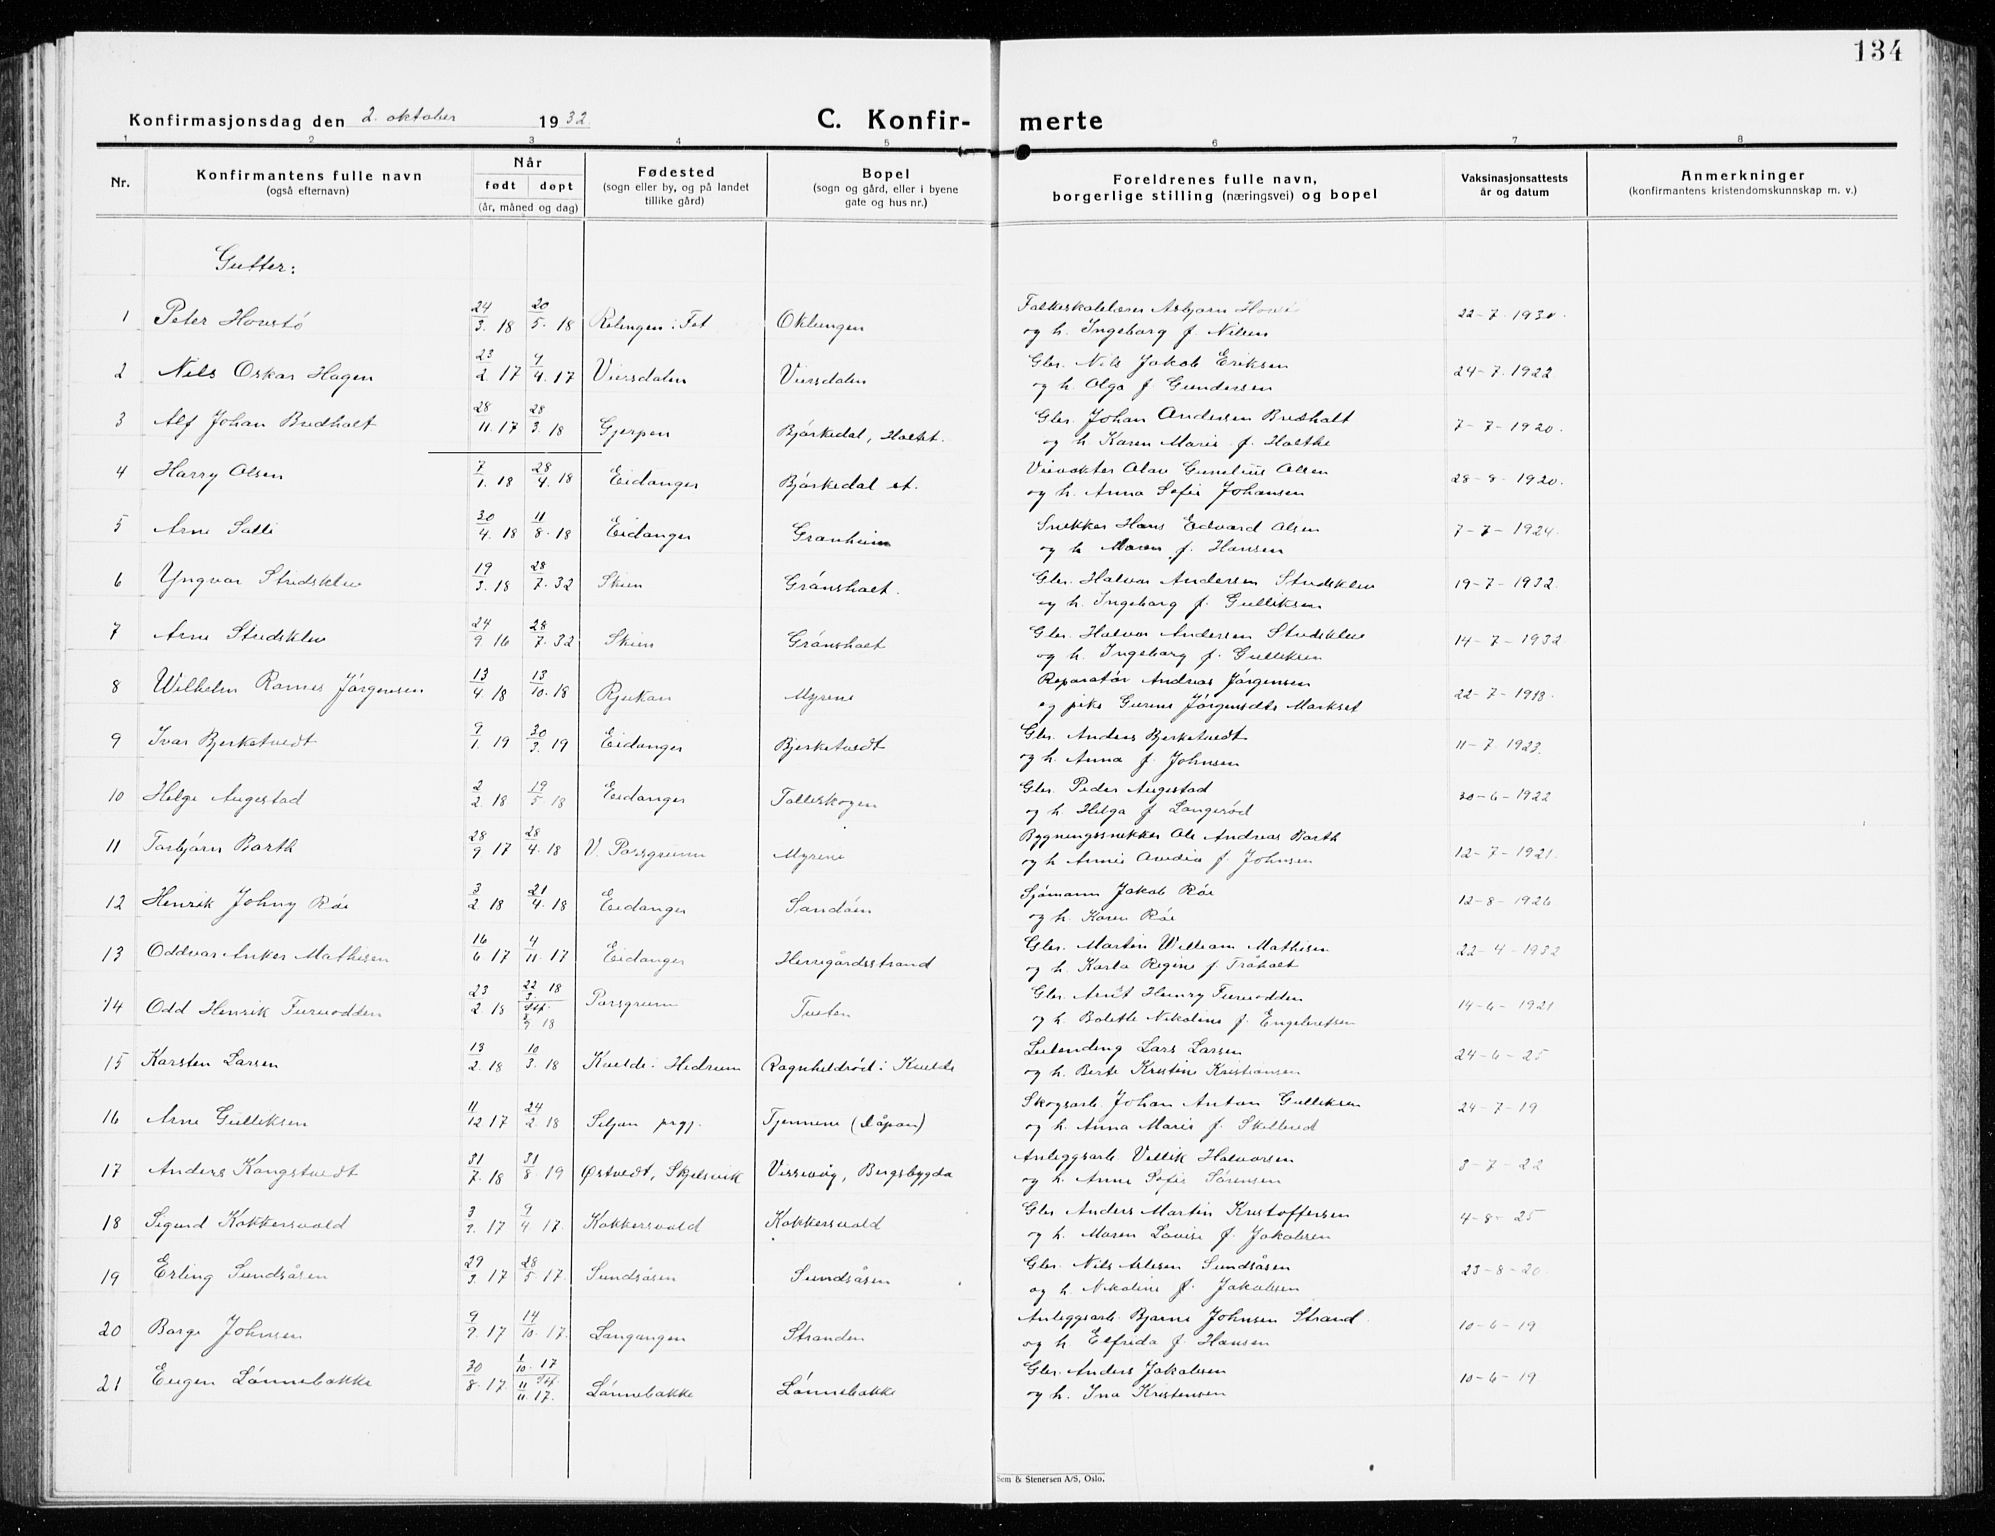 134
Konfirmasjonsdag den 2. oktober 1932.
C. Konfir- merte
1 2 3 4 5 6 7 8
Nr.
Konfirmantens fulle navn
(også efternavn)
Når
født døpt
(år, måned og dag)
Fødested
(sogn eller by, og på landet
tillike gård)
Bopel
(sogn og gård, eller i byene
gate og hus nr.)
Foreldrenes fulle navn,
borgerlige stilling (næringsvei) og bopel
Vaksinasjonsattests
år og datum
Anmerkninger
(konfirmantens kristendomskunnskap m. v.)
Gutter:
1 Peter Hovstø 24/3. 18 20/5. 18 Relingen i Fet Oklungen Asbjørn
og h. Ingeborg f. Nilsen
2 Nils Oskar Hagen 23/2 17 9/4. 17 Viersdalen Viersdalen Gbr. Nils Jakob Eriksen 24-7. 1922
og h. Olga f. Gundersen
3 Alf Johan Bredholt 28/11. 17 28/3. 18 Gjerpen Bjørkedal, Holtet. Gbr. Johan Andersen Bredholt 7-7-1920.
og h Karen Marie f. Holtke
4 Harry Olsen 7/1. 18 28/4. 18 Eidanger Bjørkedal st. Olav Olsen 28-8-1920.
og h. Anna Sofie Johansen
5 Arne Salli 30/4. 18 11/8. 18 Eidanger Granheim Snekker Hans Edvard Olsen 7-7-1924.
og h Maren f. Hansen
6 Yngvar Stridsklev 19/3. 18 28/7. 32 Skien Grønsholt. Gbr. Halvor Andersen Stridsklev 19-7-1932.
og h. Ingeborg f. Gulliksen
7 Arne Stridsklev 24/9. 16 28/7. 32 Skien Grønsholt Gbr. Halvor Andersen Stridsklev 14-7-1932
og h. Ingeborg f. Gulliksen
8 Wilhelm Jørgensen 13/4. 18 13/10. 18 Rjukan Myrene Reparatør Andreas Jørgensen 22-7-
og pike Gurine Jørgensdtr Markset
9 Ivar Bjerketvedt 9/1. 19 30/3. 19 Eidanger Bjerketvedt Gbr. Anders Bjerketvedt 11-7 1923.
og h. Anna f. Johnsen
10 Helge Augestad 2/2 18 19/5 18 Eidanger Tolleskogen Gbr. Peder Augestad 30-6-1922
og h Helga f Langerød
11 Torbjørn Barth 28/9 17 28/4. 18 V. Porsgrunn Myrene Bygningssnekker Ole Andreas Barth 12-7-1921.
og h Annie f. Johnsen
12 Henrik Johny Røe 3/2. 18 21/4. 18 Eidanger Sandøen Sjømann Jakob Røe 12-8-1926
og h. Karen Røe
13 Oddvar Anker Mathisen 16/6 17 4/11. 17 Eidanger Herregårdsstrand Gbr. Martin William Mathisen 22-4-1932
og h. Karla Regine f. Tråholt
14 Odd Henrik Furuodden 23/2. 18 22/3. 18 Porsgrunn Tveten Gbr. Arnt Henry Furuodden 14-6-1921
18 og h. Bolette Nikoline f. Engebretsen
15 Karsten Larsen 13/2. 18 10/3. 18 Kvelde i Hedrum Ragnhildrød i Kvelde Leilending Lars Larsen 24-6-25
og h. Berte Kristine Kristiansen
16 Arne Gulliksen 11/12 17 24/2. 18 Siljan prgj. Tjennene (Låpan) Skogsarb. Johan Anton Gulliksen 24-7-19
og h. Anna Marie f.
17 Anders Kongstvedt 31/7. 18 31/8 19 Østvedt, Skjelsvik Vissevåg, Bergsbygda Anleggsarb. Halvorsen 3-7-22
og h. Anne Sofie Sørensen
18 Sigurd Kokkersvold 3/2. 17 9/4 17. Kokkersvold Kokkersvold Gbr Anders Martin Kristoffersen 4-8-25
og h. Maren Lovise f. Jakobsen
19 Erling Sundsåsen 29/3. 17 28/5 17. Sundsåsen Sundsåsen Gbr. Nils Sundsåsen 23-8-20.
og h. Nikoline f. Jakobsen
20 Borge Johnsen 9/9. 17 14/10. 17. Langangen Stranden Anleggsarb. Bjarne Johnsen Strand 10-6-19
og h Elfrida f. Hansen
21 Eugen Lønnebakke 30/8. 17 1/10. 17 Lønnebakke Lønnebakke Gbr. Anders Jakobsen 10-6-19.
11/11. 17. og h. Ina Kristensen
Sem & Stenersen A/S, Oslo.